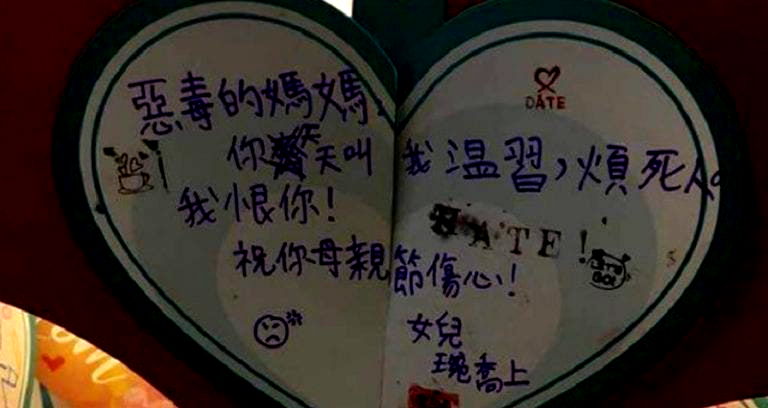 惡毒的媽媽,
DATE
你天叫我溫習,煩死人。
我恨你!
ATE!
祝你母親節傷心!
女兒
琬喬上